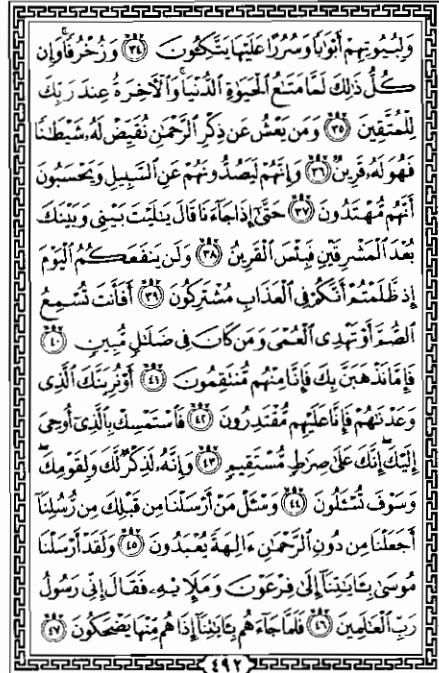 وَلِبُيُوتِهِمْ أَبْوَٰبًا وَسُرُرًا عَلَيْهَا يَتَّكِـُٔونَ ٣٤ وَزُخْرُفًا ۚ وَإِن
كُلُّ ذَٰلِكَ لَمَّا مَتَـٰعُ ٱلْحَيَوٰةِ ٱلدُّنْيَا ۚ وَٱلْـَٔاخِرَةُ عِندَ رَبِّكَ
لِلْمُتَّقِينَ ٣٥ وَمَن يَعْشُ عَن ذِكْرِ ٱلرَّحْمَـٰنِ نُقَيِّضْ لَهُۥ شَيْطَـٰنًا
فَهُوَ لَهُۥ قَرِينٌ ٣٦ وَإِنَّهُمْ لَيَصُدُّونَهُمْ عَنِ ٱلسَّبِيلِ وَيَحْسَبُونَ
أَنَّهُم مُّهْتَدُونَ ٣٧ حَتَّىٰٓ إِذَا جَآءَنَا قَالَ يَـٰلَيْتَ بَيْنِى وَبَيْنَكَ
بُعْدَ ٱلْمَشْرِقَيْنِ فَبِئْسَ ٱلْقَرِينُ ٣٨ وَلَن يَنفَعَكُمُ ٱلْيَوْمَ
إِذ ظَّلَمْتُمْ أَنَّكُمْ فِى ٱلْعَذَابِ مُشْتَرِكُونَ ٣٩ أَفَأَنتَ تُسْمِعُ
ٱلصُّمَّ أَوْ تَهْدِى ٱلْعُمْىَ وَمَن كَانَ فِى ضَلَـٰلٍ مُّبِينٍ ٤٠
فَإِمَّا نَذْهَبَنَّ بِكَ فَإِنَّا مِنْهُم مُّنتَقِمُونَ ٤١ أَوْ نُرِيَنَّكَ ٱلَّذِى
وَعَدْنَـٰهُمْ فَإِنَّا عَلَيْهِم مُّقْتَدِرُونَ ٤٢ فَٱسْتَمْسِكْ بِٱلَّذِىٓ أُوحِىَ
إِلَيْكَ ۖ إِنَّكَ عَلَىٰ صِرَٰطٍ مُّسْتَقِيمٍ ٤٣ وَإِنَّهُۥ لَذِكْرٌ لَّكَ وَلِقَوْمِكَ ۖ
وَسَوْفَ تُسْـَٔلُونَ ٤٤ وَسْـَٔلْ مَنْ أَرْسَلْنَا مِن قَبْلِكَ مِن رُّسُلِنَآ
أَجَعَلْنَا مِن دُونِ ٱلرَّحْمَـٰنِ ءَالِهَةً يُعْبَدُونَ ٤٥ وَلَقَدْ أَرْسَلْنَا
مُوسَىٰ بِـَٔايَـٰتِنَآ إِلَىٰ فِرْعَوْنَ وَمَلَإِي۟هِۦ فَقَالَ إِنِّى رَسُولُ
رَبِّ ٱلْعَـٰلَمِينَ ٤٦ فَلَمَّا جَآءَهُم بِـَٔايَـٰتِنَآ إِذَا هُم مِّنْهَا يَضْحَكُونَ ٤٧
٤٩٢